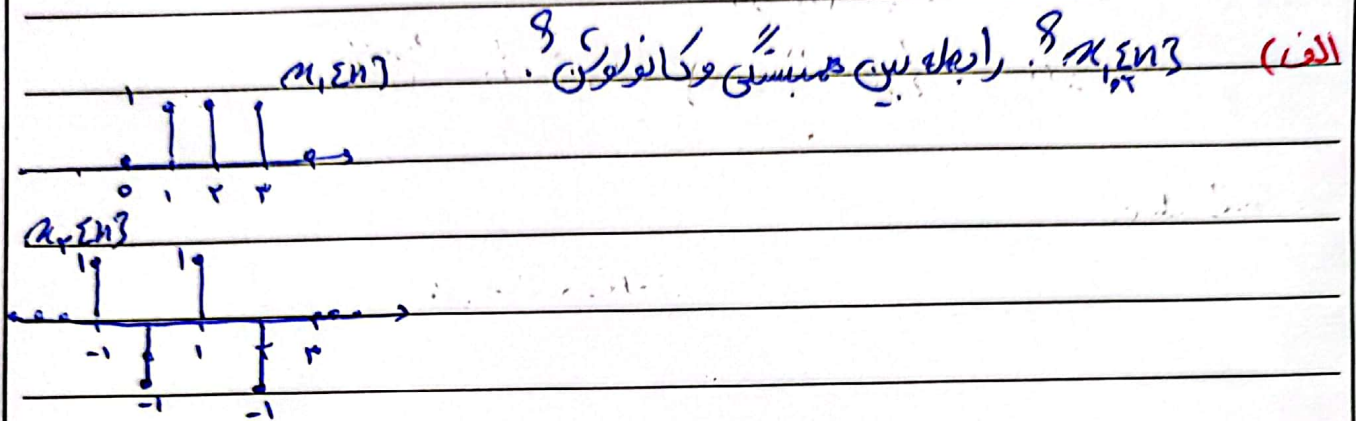 الف) x₁,₂[n] ؟. رابطه بین همبستگی و کانولوشن ؟.
x₁[n]
۱
۰ ۱ ۲ ۳
x₂[n]
۱ ۱
-۱ ۱ ۲ ۳
-۱ -۱